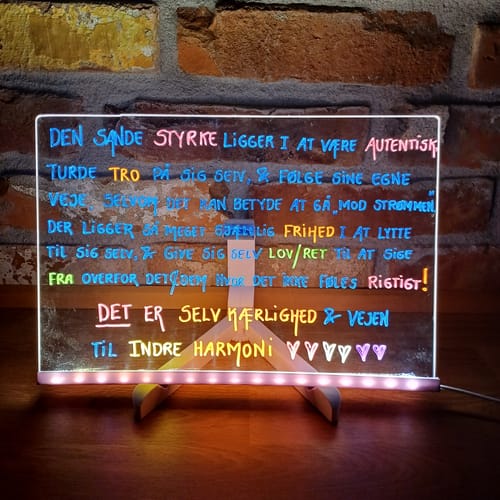 DEN SANDE STYRKE LIGGER I AT VÆRE AUTENTISK
TURDE TRO PÅ SIG SELV, & FØLGE SINE EGNE
VEJE. SELVOM DET KAN BETYDE AT GÅ "MOD STRØMMEN"
DER LIGGER SÅ MEGET SJÆLELIG FRIHED I AT LYTTE
TIL SIG SELV, & GIVE SIG SELV LOV/RET TIL AT SIGE
FRA OVERFOR DET/DEM HVOR DET IKKE FØLES RIGTIGT!
DET ER SELV KÆRLIGHED & VEJEN
TIL INDRE HARMONI